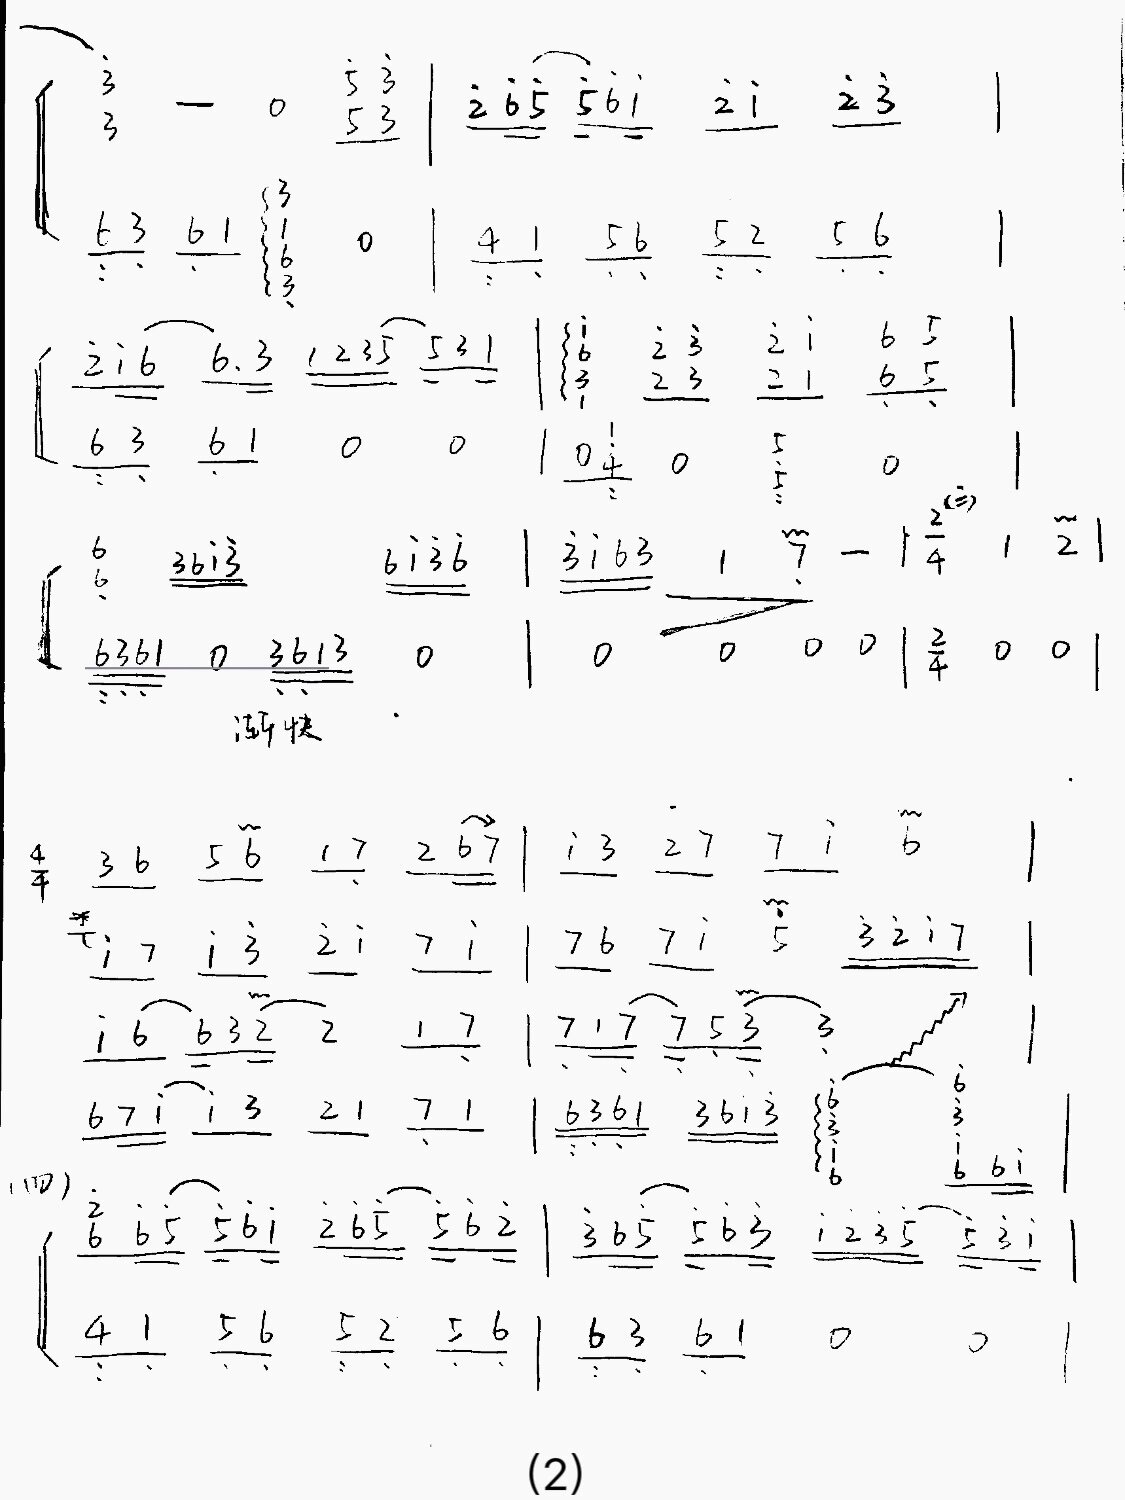 3̇ 5̇ 3̇
3 — 0 5 3 | 2̇ 6̇ 5̇ 5̇ 6̇ 1̇ 2̇ 1̇ 2̇ 3̇ |
6 3 6 1 3 1 6 3 0 | 4 1 5 6 5 2 5 6 |
2̇ 1̇ 6 6. 3 1 2 3 5 5 3 1 | 1̇ 6 3 1 2̇ 3̇ 2̇ 1̇ 6 5
2 3 2 1 6 5 |
6 3 6 1 0 0 | 0 1 4 0 5 5 0 |
6 6 3 6 1̇ 3̇ 6 1̇ 3̇ 6̇ | 3̇ 1̇ 6 3 1 7 — | 2/4 (三) 1 2 |
6 3 6 1 0 3 6 1 3 0 | 0 0 0 0 | 2/4 0 0 |
渐快
4/4 3 6 5 6 1 7 2 6 7 | 1̇ 3 2 7 7 1̇ 6 |
1̇ 7 1̇ 3̇ 2̇ 1̇ 7 1̇ | 7 6 7 1̇ 5 3̇ 2̇ 1̇ 7 |
1̇ 6 6 3 2 2 1 7 | 7 1 7 7 5 3 3 |
6 7 1̇ 1̇ 3 2 1 7 1 | 6 3 6 1 3 6 1̇ 3̇ 6̇ 3̇ 1̇ 6 6̇ 3̇ 1̇ 6 6 1̇ |
(四)
2̇ 6 6̇ 5̇ 5̇ 6̇ 1̇ 2̇ 6̇ 5̇ 5̇ 6̇ 2̇ | 3̇ 6̇ 5̇ 5̇ 6̇ 3̇ 1̇ 2̇ 3̇ 5̇ 5̇ 3̇ 1̇ |
4 1 5 6 5 2 5 6 | 6 3 6 1 0 0 |
(2)